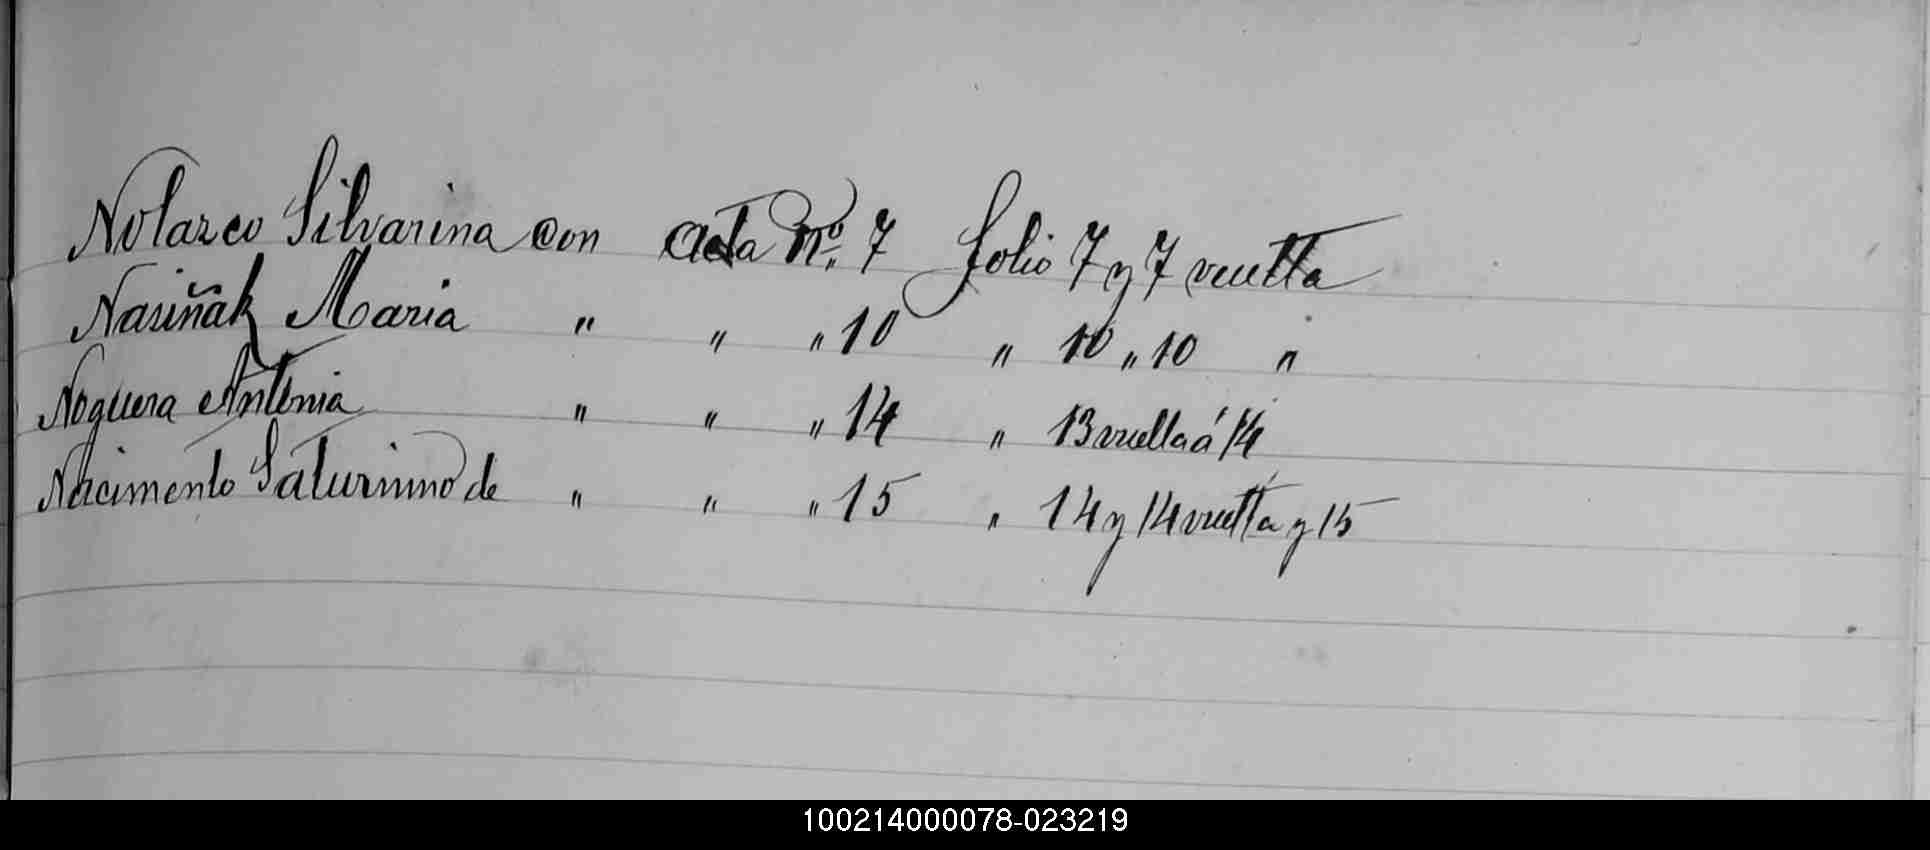 Nolazco Silvarina con acta Nº. 7 folio 7 y 7 vuelta
Nasiñak Maria " " " 10 " 10 " 10 "
Noguera Antonia " " " 14 " 13 vuelta á 14
Nacimento Saturnino de " " " 15 " 14 y 14 vuelta y 15
100214000078-023219